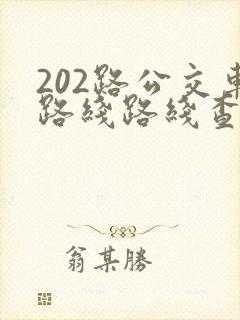 202路公交車
路綫路綫查
翁某勝